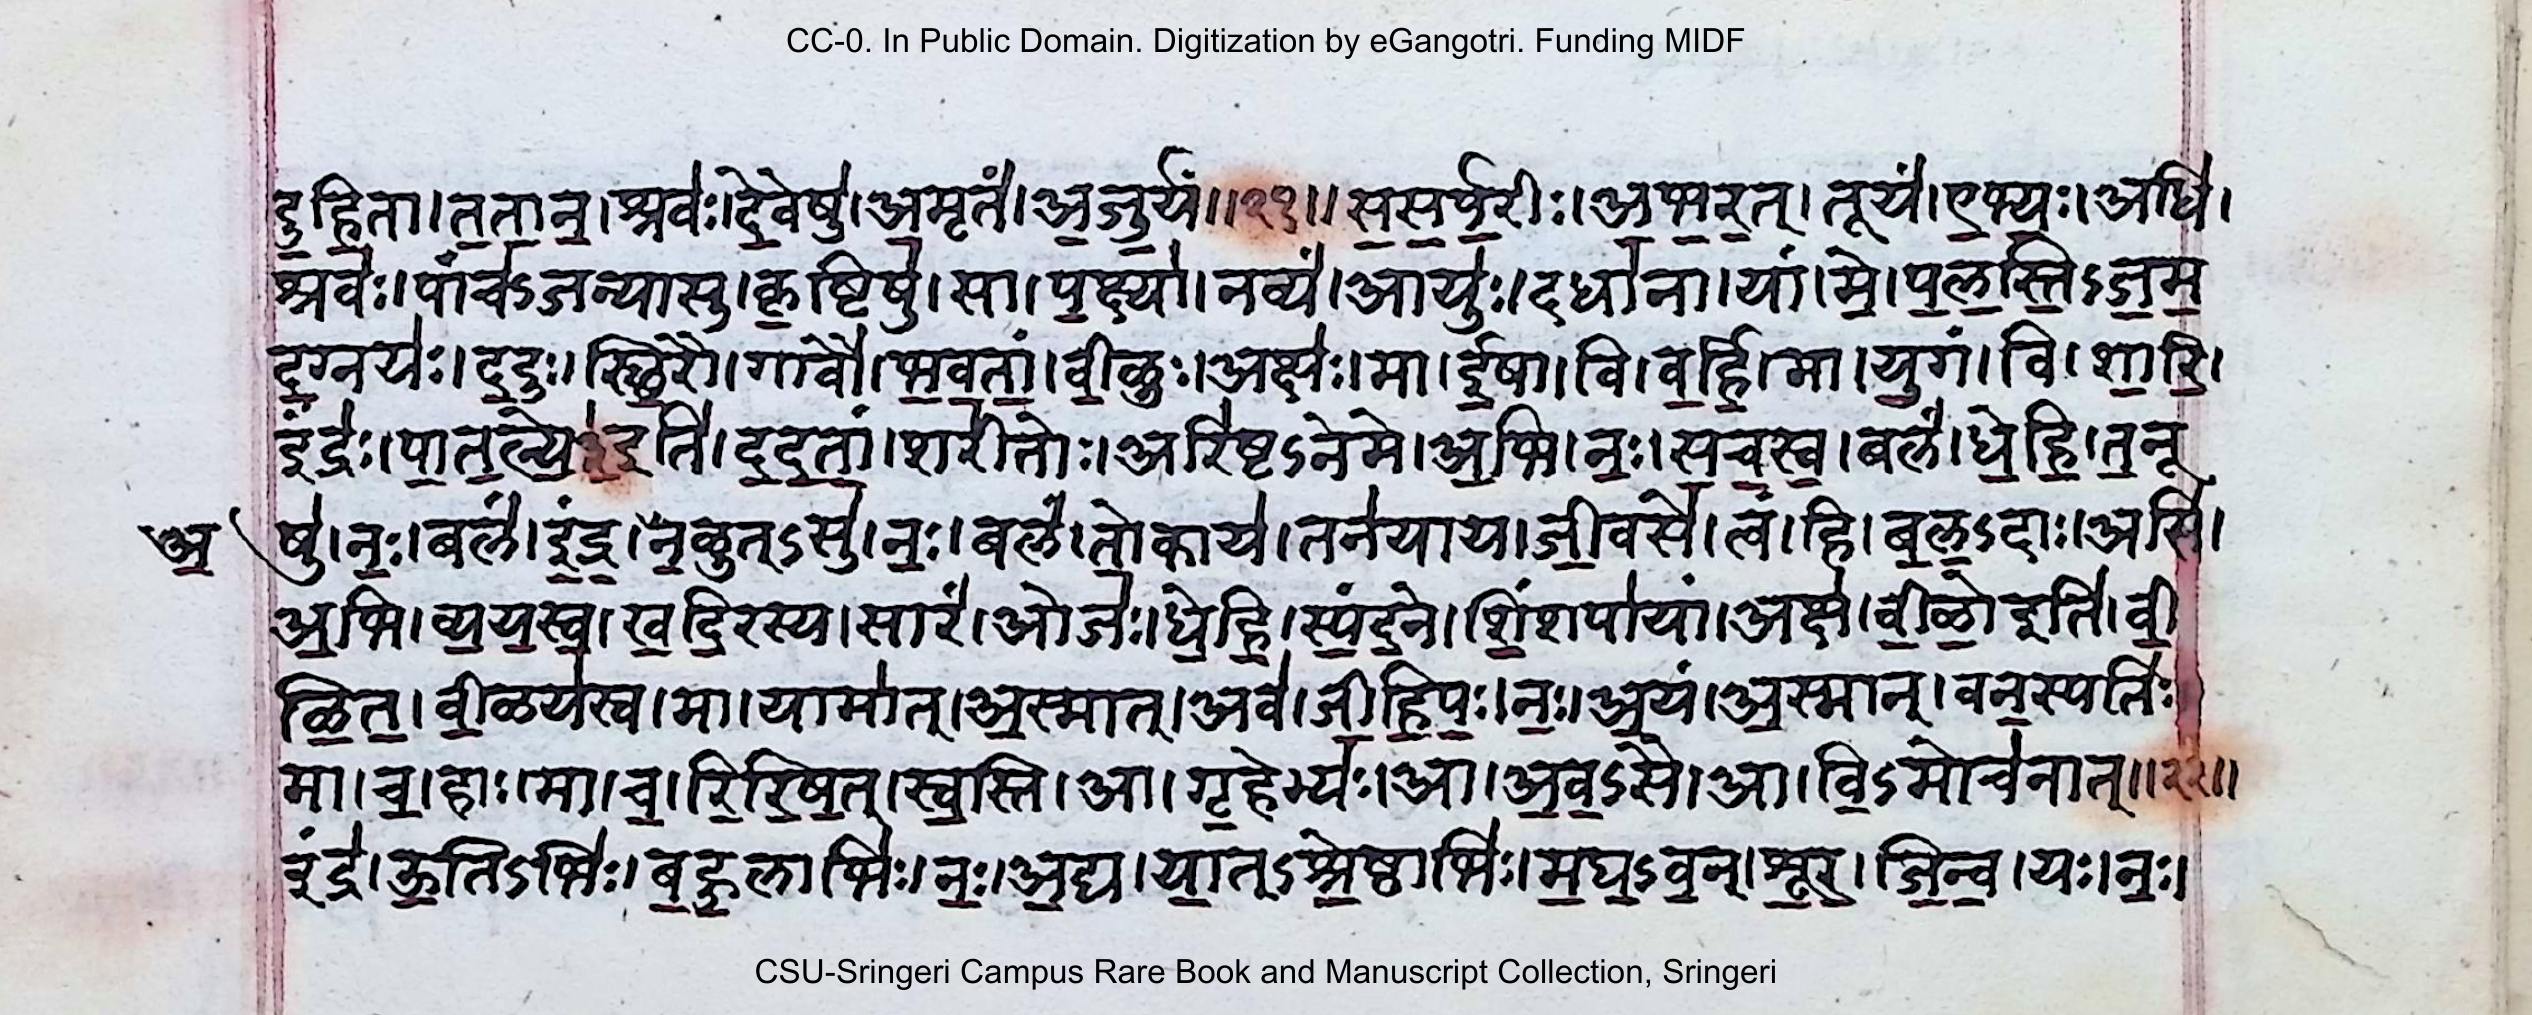 CC-0. In Public Domain. Digitization by eGangotri. Funding MIDF
दु॒हि॒ता। त॒ता॒न॒। श्रवः॑। दे॒वेषु॑। अ॒मृतं॑। अ॒जु॒र्यं॥२१॥ स॒स॒र्प॒रीः। अ॒भ॒र॒त्। तूयं॑। ए॒भ्यः॒। अधि॑।
श्रवः॑। पांच॑ऽजन्यासु। कृ॒ष्टिषु॑। सा। प॒क्ष्या॑। नव्यं॑। आयुः॑। दधा॑ना। यां। मे॒। प॒ल॒स्ति॒ऽज॒म॒
द॒ग्नयः॑। द॒दुः। स्थि॒रौ। गावौ॑। भ॒व॒तां॒। वी॒ळुः। अक्षः॑। मा। ई॒षा। वि। व॒र्हि॒। मा। यु॒गं। वि। शा॒रि॒।
इंद्रः॑। पा॒त॒ल्ये॒३॒॑इति॑। द॒द॒तां॒। शरी॑तोः। अरि॑ष्टऽनेमे। अ॒भि। नः॒। स॒च॒स्व॒। बलं॑। धे॒हि॒। त॒नू
षु॑। नः॒। बलं॑। इं॒द्र॒। अ॒न॒ळुत्ऽसु॑। नः॒। बलं॑। तो॒काय॑। तन॑याय। जी॒वसे॑। त्वं। हि। ब॒ल॒ऽदाः। असि॑।
अ॒भि। व्य॒य॒स्व॒। ख॒दि॒रस्य। सारं॑। ओजः॑। धे॒हि॒। स्पं॒द॒ने। शिं॒शपा॑यां। अक्ष॑। वी॒ळो॒ इति॑। वी॒
ळि॒त॒। वी॒ळय॑स्व। मा। यामा॑त्। अ॒स्मात्। अव॑। जी॒हि॒पः॒। नः॒। अ॒यं। अ॒स्मान्। वन॒स्पतिः॑
मा। च॒। हाः। मा। च॒। रि॒रि॒ष॒त्। स्व॒स्ति। आ। गृ॒हेभ्यः॑। आ। अ॒व॒ऽसै। आ। वि॒ऽमोच॑नात्॥२२॥
इंद्र॑। ऊ॒तिऽभिः॑। ब॒हु॒लाभिः॑। नः॒। अ॒द्य। या॒त्ऽश्रे॒ष्ठाभिः॑। म॒घ॒ऽव॒न्। शू॒र॒। जि॒न्व॒। यः। नः॒।
CSU-Sringeri Campus Rare Book and Manuscript Collection, Sringeri